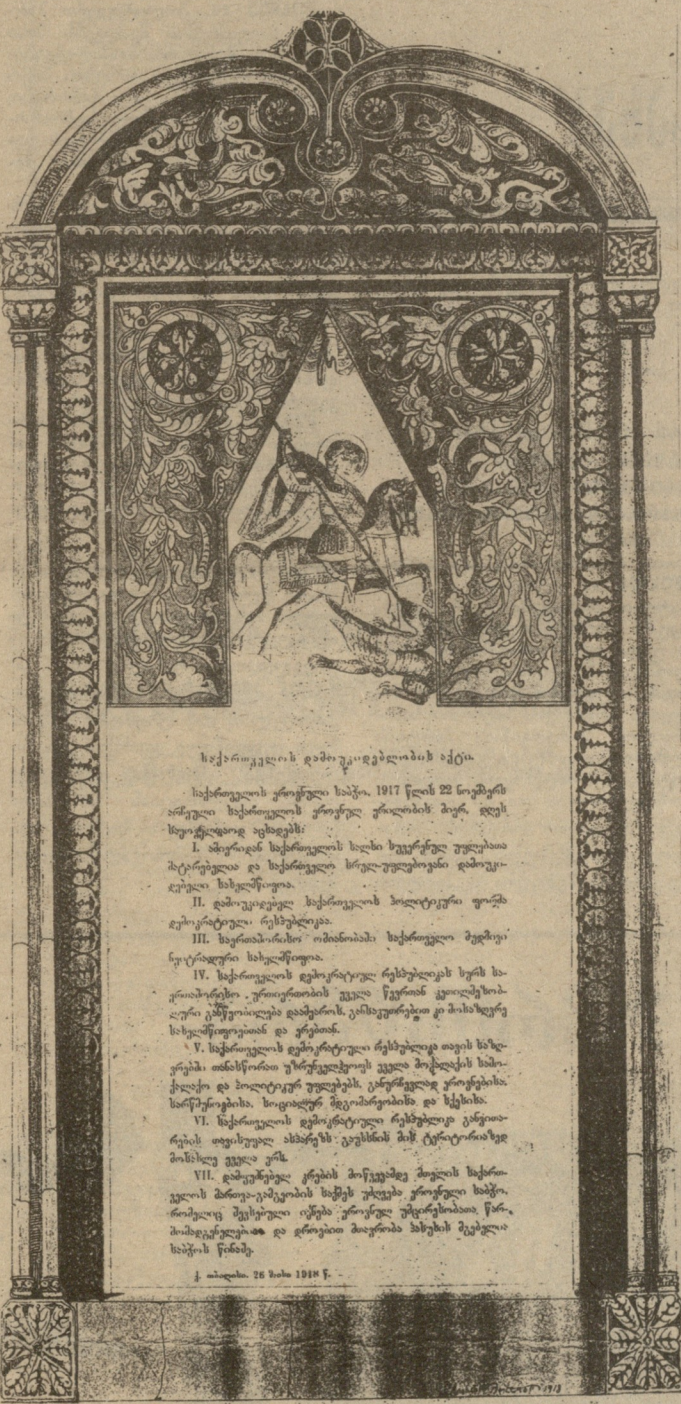 საქართველოს დამოუკიდებლობის აქტი.
საქართველოს ეროვნული საბჭო, 1917 წლის 22 ნოემბერს
არჩეული საქართველოს ეროვნულ ყრილობის მიერ, დღეს
საყოველთაოდ აცხადებს:
I. ამიერიდან საქართველოს ხალხი სუვერენულ უფლებათა
მატარებელია და საქართველო სრულ-უფლებოვანი დამოუკი-
დებელი სახელმწიფოა.
II. დამოუკიდებელ საქართველოს პოლიტიკური ფორმა
დემოკრატიული რესპუბლიკაა.
III. საერთაშორისო ომიანობაში საქართველო მუდმივი
ნეიტრალური სახელმწიფოა.
IV. საქართველოს დემოკრატიულ რესპუბლიკას სურს სა-
ერთაშორისო ურთიერთობის ყველა წევრთან კეთილმეზობ-
ლური განწყობილება დაამყაროს, განსაკუთრებით კი მოსაზღვრე
სახელმწიფოებთან და ერებთან.
V. საქართველოს დემოკრატიული რესპუბლიკა თავის საზღ-
ვრებში თანასწორათ უზრუნველჰყოფს ყველა მოქალაქის სამო-
ქალაქო და პოლიტიკურ უფლებებს, განურჩევლად ეროვნებისა,
სარწმუნოებისა, სოციალურ მდგომარეობისა და სქესისა.
VI. საქართველოს დემოკრატიული რესპუბლიკა განვითა-
რების თავისუფალ ასპარეზს გაუხსნის მის ტერიტორიაზედ
მოსახლე ყველა ერს.
VII. დამფუძნებელ კრების მოწვევამდე მთელის საქართ-
ველოს მართვა-გამგეობის საქმეს უძღვება ეროვნული საბჭო,
რომელიც შევსებული იქნება ეროვნულ უმცირესობათა წარ-
მომადგენლებით და დროებით მთავრობა პასუხის მგებელია
საბჭოს წინაშე.
ქ. თბილისი. 26 მაისი 1918 წ.
1918